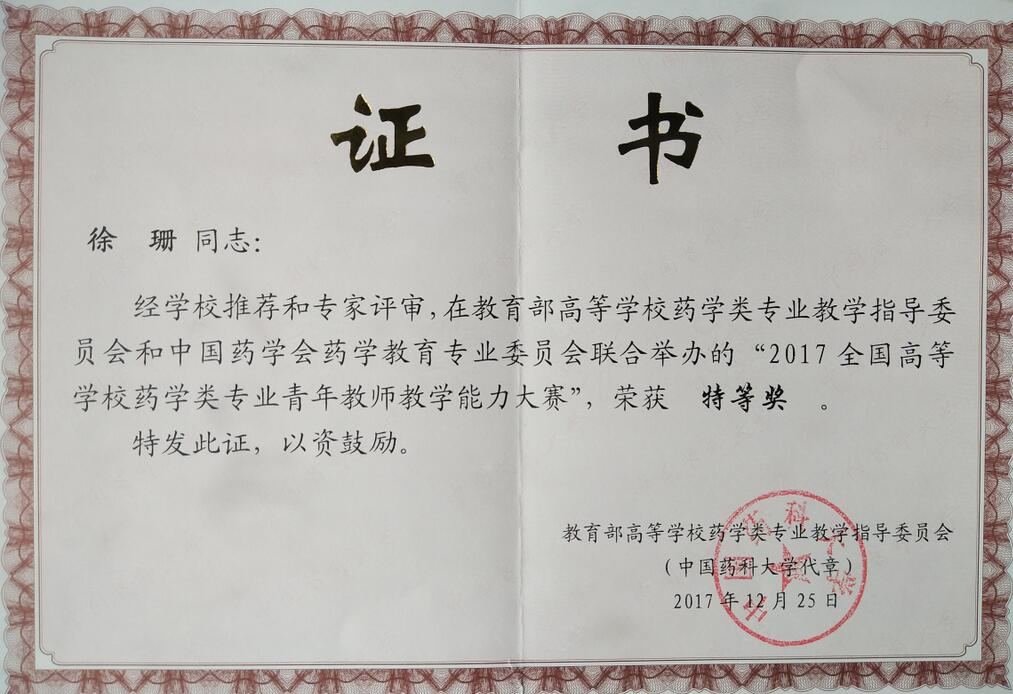 证 书
徐 珊 同志：
经学校推荐和专家评审，在教育部高等学校药学类专业教学指导委
员会和中国药学会药学教育专业委员会联合举办的“2017 全国高等
学校药学类专业青年教师教学能力大赛”，荣获 特等奖 。
特发此证，以资鼓励。
教育部高等学校药学类专业教学指导委员会
（中国药科大学代章）
2017 年 12 月 25 日
中国药科大学